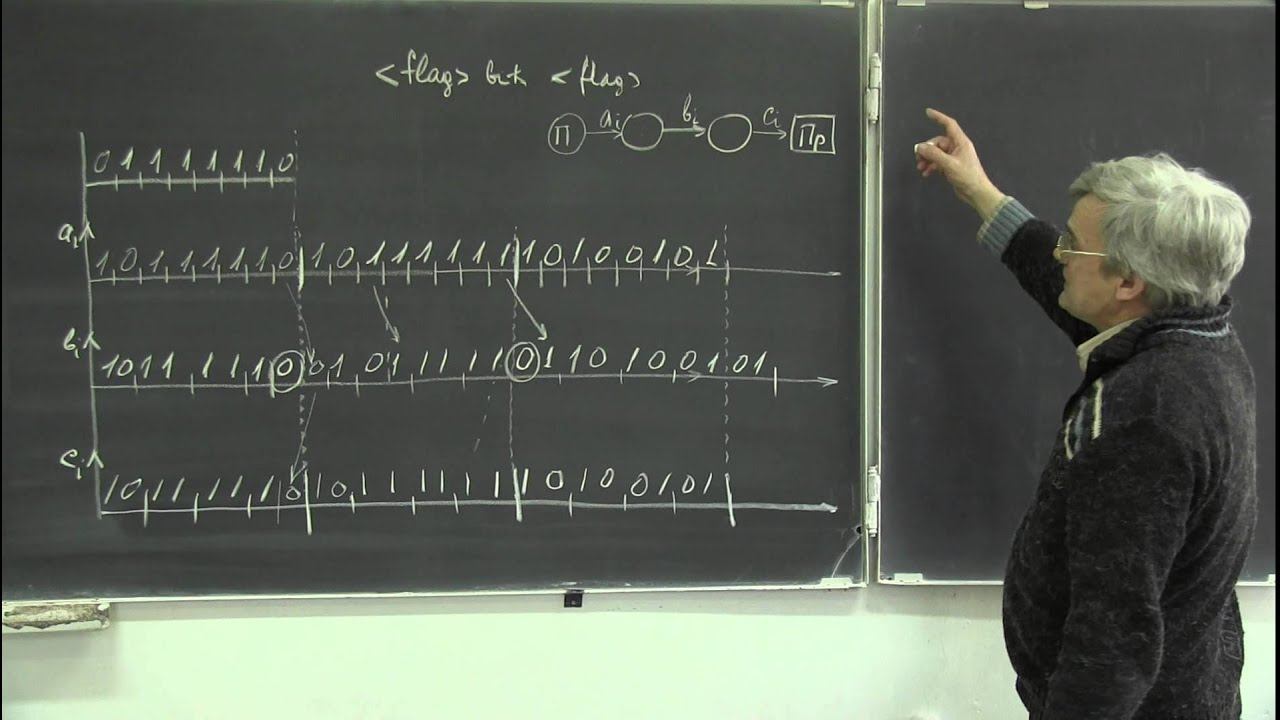 <flag> bit <flag>
П aᵢ bᵢ cᵢ Пр
0 1 1 1 1 1 1 0
aᵢ 1 0 1 1 1 1 1 0 1 0 1 1 1 1 1 1 1 0 1 0 0 1 0 1
bᵢ 1 0 1 1 1 1 1 0 0 1 0 1 1 1 1 1 0 1 1 0 1 0 0 1 0 1
cᵢ 1 0 1 1 1 1 1 0 1 0 1 1 1 1 1 1 1 0 1 0 0 1 0 1